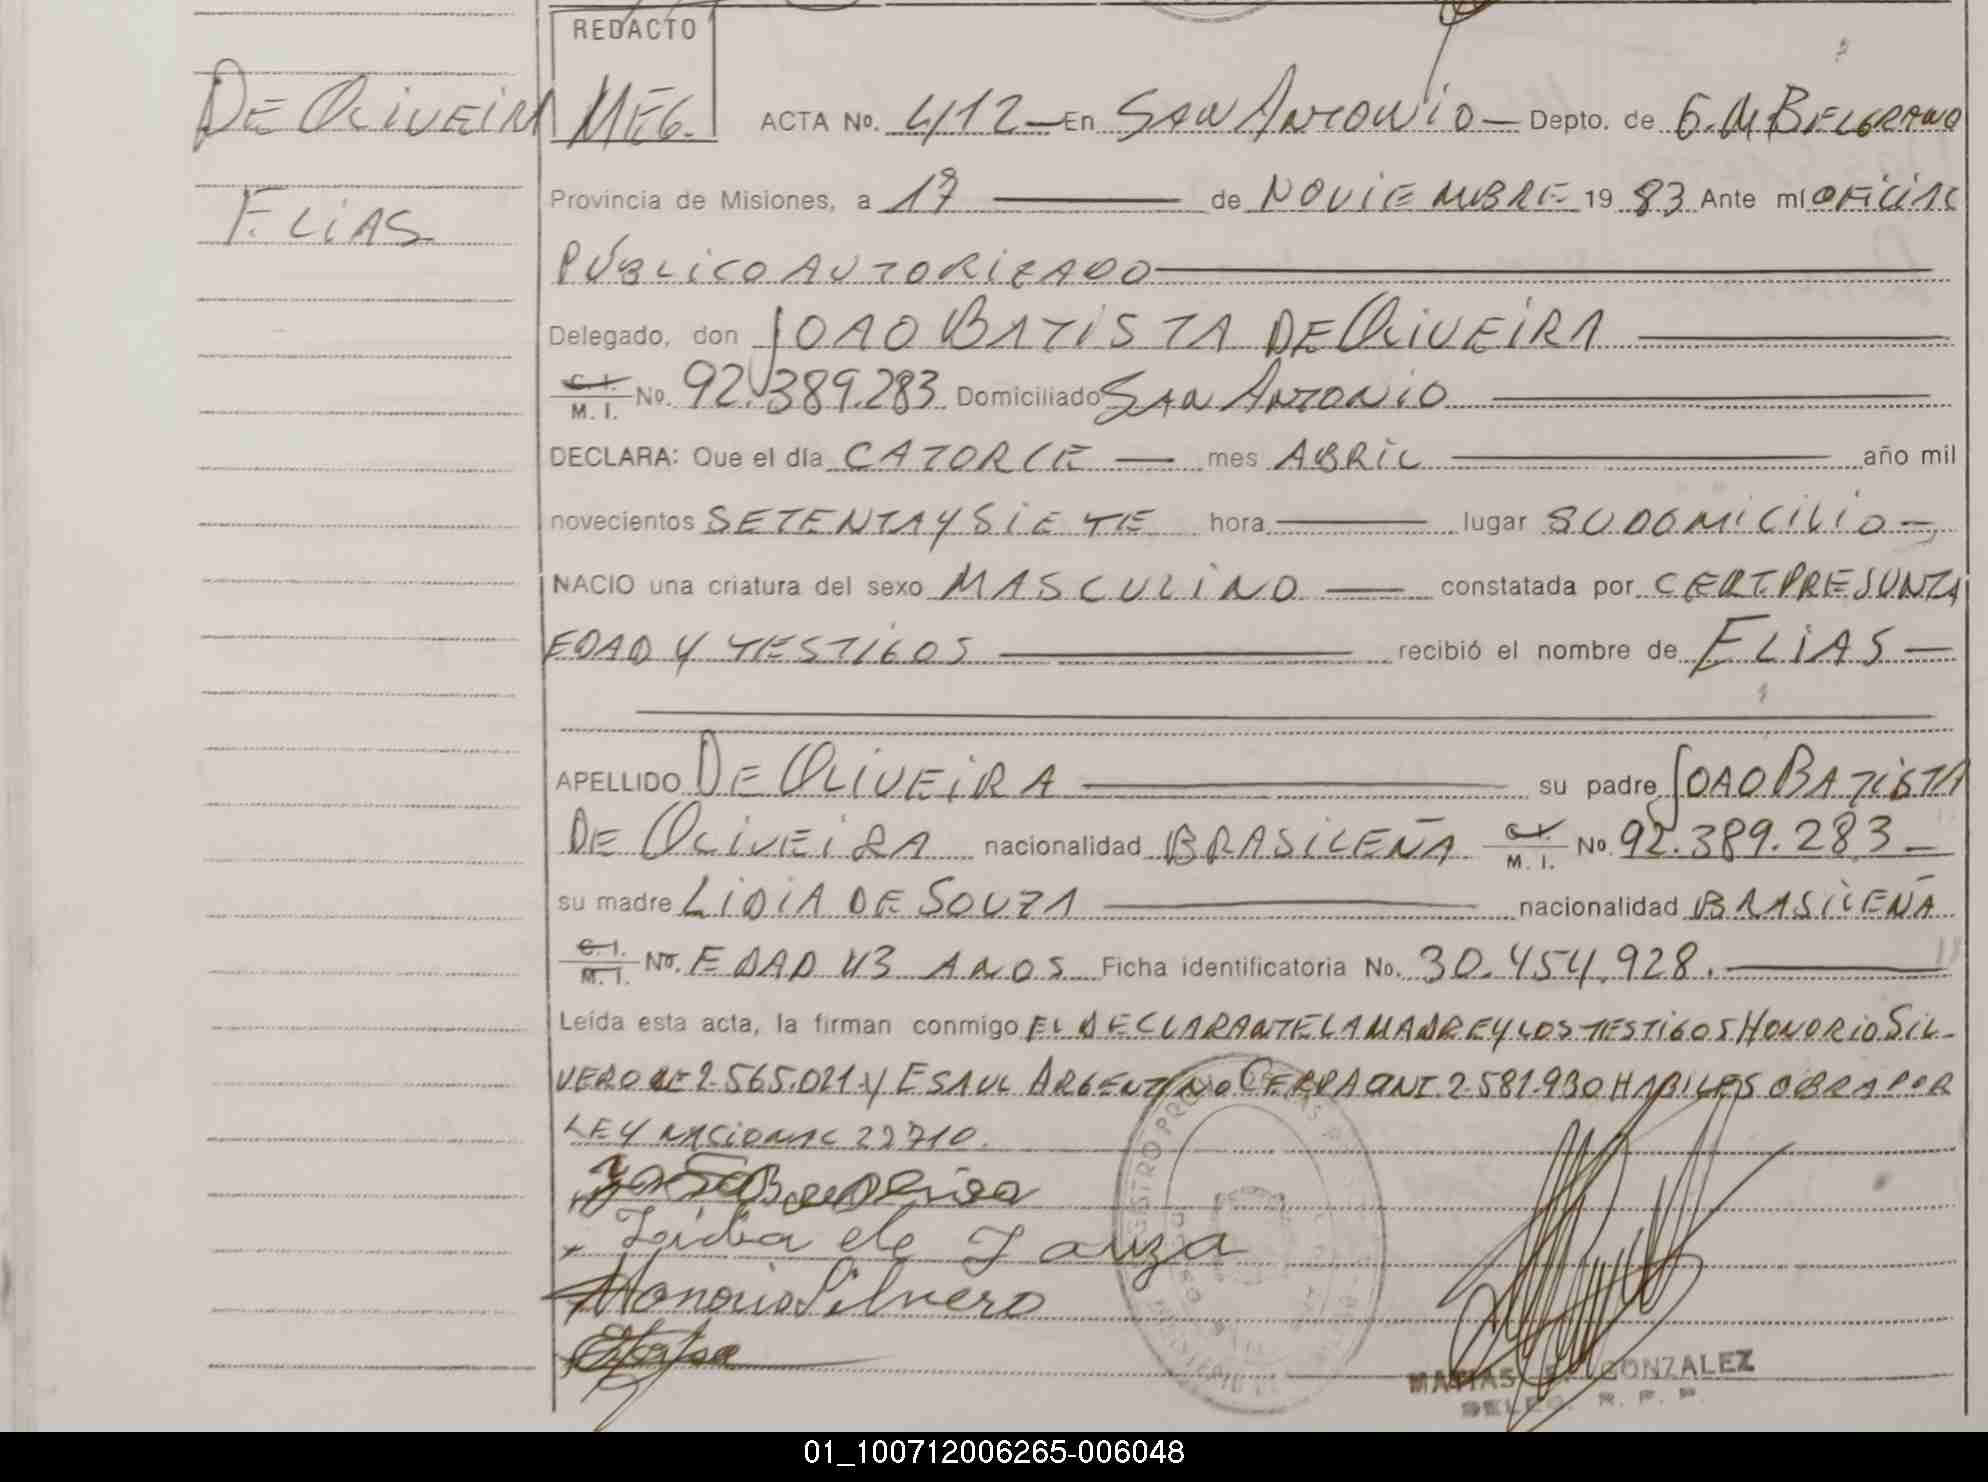 REDACTO
DE OLIVEIRA MEG. ACTA No. 412 — En SAN ANTONIO — Depto. de G. M BELGRANO
Provincia de Misiones, a 17 — de NOVIEMBRE 1983 Ante mí OFICIAL
ELIAS
PÚBLICO AUTORIZADO —
Delegado, don JOAO BATISTA DE OLIVEIRA —
C. I. / M. I. No. 92.389.283 Domiciliado SAN ANTONIO —
DECLARA: Que el día CATORCE — mes ABRIL — año mil
novecientos SETENTA Y SIETE hora — lugar SU DOMICILIO —
NACIO una criatura del sexo MASCULINO — constatada por CERT. PRESUNTA
EDAD Y TESTIGOS — recibió el nombre de ELIAS —
APELLIDO DE OLIVEIRA — su padre JOAO BATISTA
DE OLIVEIRA nacionalidad BRASILEÑA C. I. / M. I. No. 92.389.283 —
su madre LIDIA DE SOUZA — nacionalidad BRASILEÑA
C. I. / M. I. No. EDAD 43 AÑOS Ficha identificatoria No. 30.454.928. —
Leída esta acta, la firman conmigo EL DECLARANTE LA MADRE Y LOS TESTIGOS HONORIO SIL-
VERO 2.565.021 Y ESAUL ARGENTINO CERPA DNI. 2.581.930 HABILES OBRA POR
LEY NACIONAL 22710.
Lidia de Souza
Honorio Silvero
MATIAS GONZALEZ
DELEG. R. P. P.
01_100712006265-006048